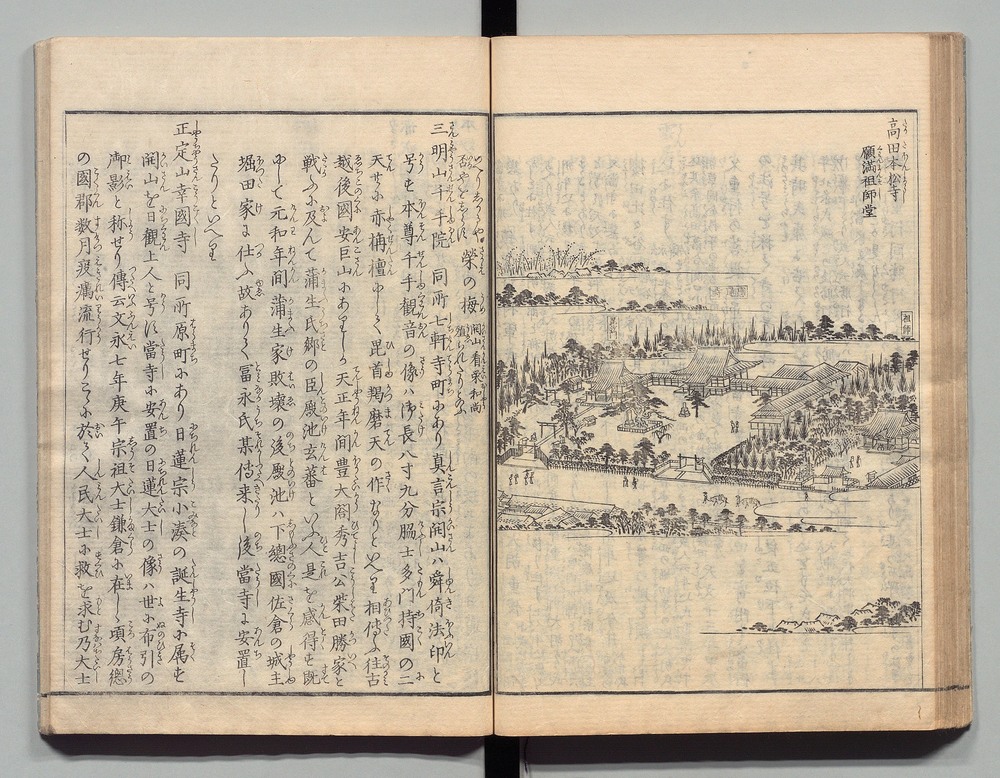 高田本松寺
願満祖師堂
祖師
栄の梅 開山看栗和尚
三明山千手院 同所七軒寺町にあり真言宗開山ハ舜倚法印と
号を本尊千手観音の像ハ御長八寸九分脇士多門持國の二
天共に赤栴檀中しく毘首羯磨天の作なりといへり相傳ふ往古
越後國安巨山にありしか天正年間豊大閤秀吉公柴田勝家と
戦ふに及んて蒲生氏郷の臣厩池玄蕃といふ人是を感得を既
中して元和年間蒲生家敗壊の後厩池ハ下總國佐倉の城主
堀田家に仕ふ故ありて冨永氏某傳来し後當寺に安置し
たりといへり
正定山幸國寺 同所原町にあり日蓮宗小湊の誕生寺に属を
開山を日観上人と号に當寺に安置の日蓮大士の像ハ世に布引の
御影と称せり傳云文永七年庚午宗祖大士鎌倉に在し頃房總
の國郡数月疫癘流行せりこゝに於て人民大士に救を求む乃大士